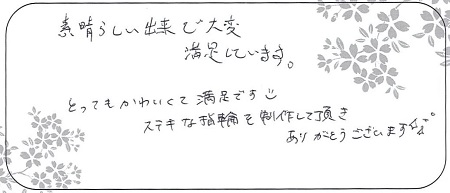 素晴らしい出来で大変
満足しています。
とってもかわいくて満足です
ステキな指輪を制作して頂き
ありがとうございます